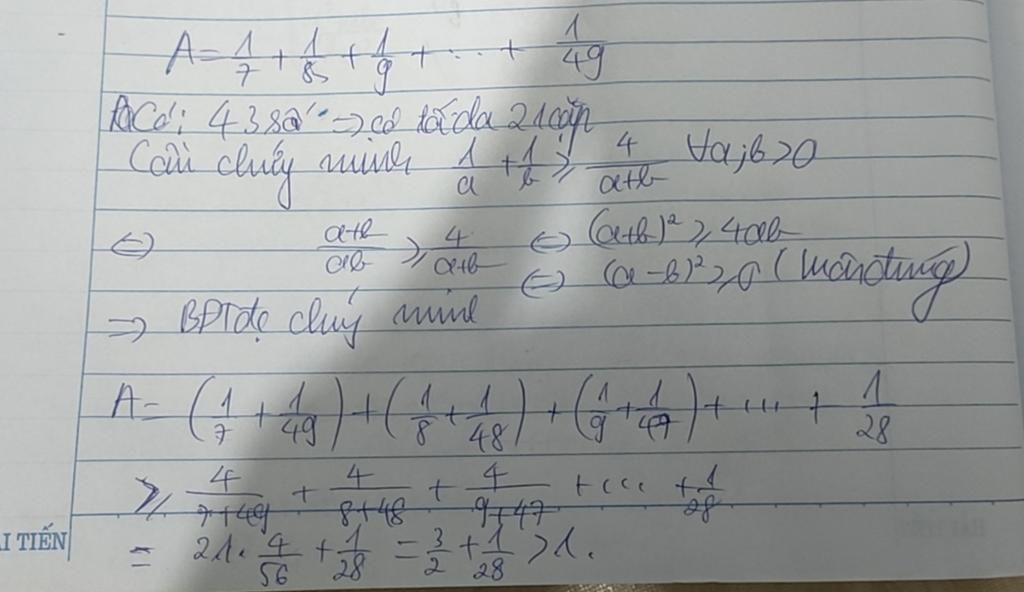 A = 1/7 + 1/8 + 1/9 + ... + 1/49
Có: 43 số => có tối đa 21 cặp
Cần chứng minh 1/a + 1/b ≥ 4/(a+b) ∀a;b>0
⇔ (a+b)/(ab) ≥ 4/(a+b) ⇔ (a+b)² ≥ 4ab
⇔ (a-b)² ≥ 0 (luôn đúng)
=> BĐT đc chứng minh
A = (1/7 + 1/49) + (1/8 + 1/48) + (1/9 + 1/47) + ... + 1/28
≥ 4/(7+49) + 4/(8+48) + 4/(9+47) + ... + 1/28
= 21. 4/56 + 1/28 = 3/2 + 1/28 > 1.
I TIẾN